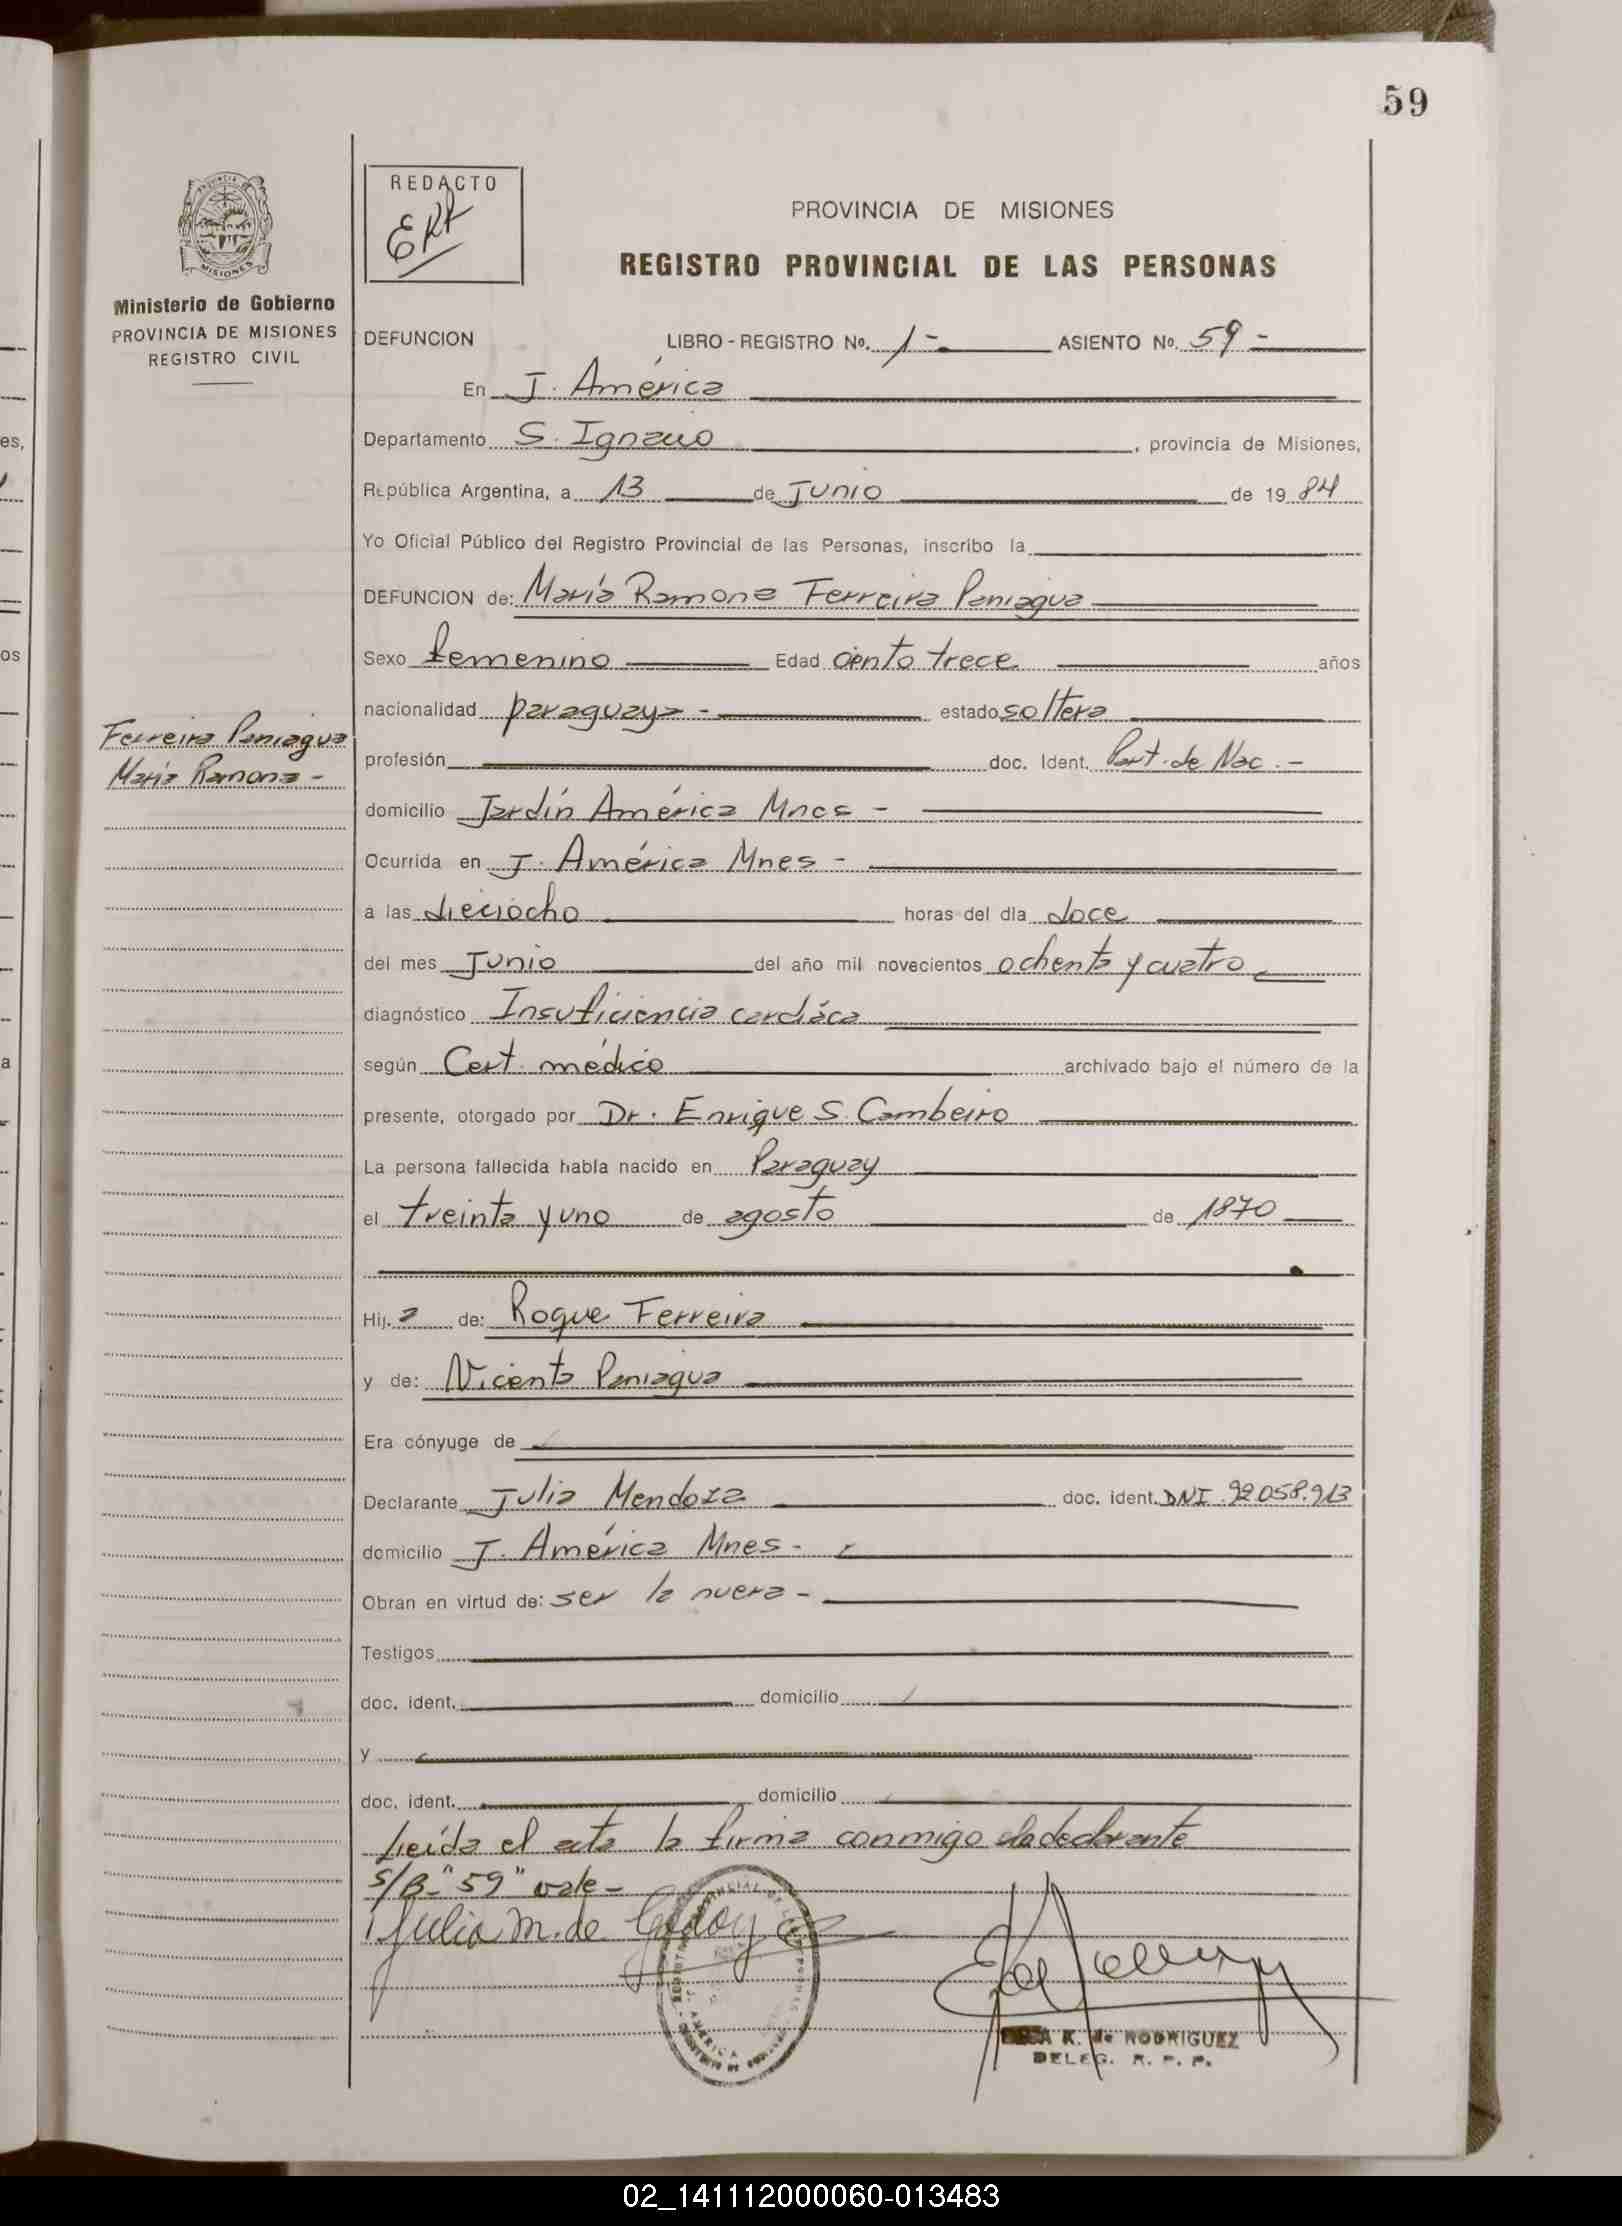 59
REDACTO
ERR
PROVINCIA DE MISIONES
REGISTRO PROVINCIAL DE LAS PERSONAS
MISIONES
Ministerio de Gobierno
PROVINCIA DE MISIONES
REGISTRO CIVIL
DEFUNCION LIBRO - REGISTRO No. 1 - ASIENTO No. 59 -
En J. América
Departamento S. Ignacio, provincia de Misiones,
República Argentina, a 13 de Junio de 19 84
Yo Oficial Público del Registro Provincial de las Personas, inscribo la
DEFUNCION de: María Ramona Ferreira Paniagua
Sexo femenino Edad ciento trece años
nacionalidad paraguaya - estado soltera
Ferreira Paniagua
María Ramona -
profesión doc. Ident. Part. de Nac. -
domicilio Jardín América Mnes -
Ocurrida en J. América Mnes -
a las dieciocho horas del día doce
del mes Junio del año mil novecientos ochenta y cuatro
diagnóstico Insuficiencia cardíaca
según Cert. médico archivado bajo el número de la
presente, otorgado por Dr. Enrique S. Cambeiro
La persona fallecida había nacido en Paraguay
el treinta y uno de agosto de 1870
Hij. a de: Roque Ferreira
y de: Vicenta Paniagua
Era cónyuge de
Declarante Julia Mendoza doc. ident. DNI. 92.058.913
domicilio J. América Mnes -
Obran en virtud de: ser la nuera -
Testigos
doc. ident. domicilio
y
doc. ident. domicilio
Leída el acta la firma conmigo la declarante
S/B - "59" vale -
Julia M. de Godoy
K. de RODRIGUEZ
DELEG. R. P. P.
02_141112000060-013483